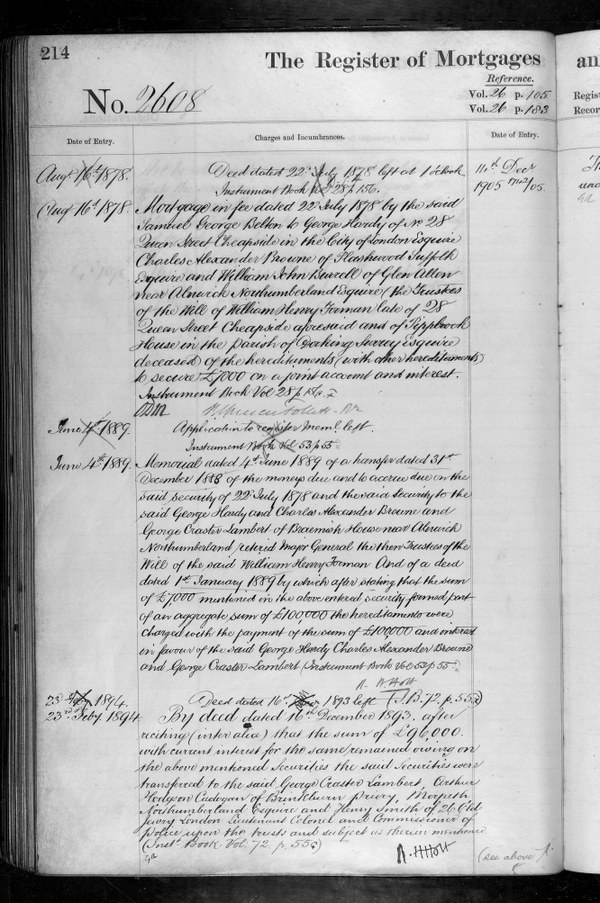 214
The Register of Mortgages
an
Reference.
No. 2608
Vol. 26 p. 105
Vol. 26 p. 183
Regist
Recor
Date of Entry.
Charges and Incumbrances.
Date of Entry.
Augt 16th 1878.
Deed dated 22d July 1878 left at 1 o'clock
11th Decr
Instrument Book Vol 28 p 156.
1905
Augt 16th 1878.
Mortgage in fee dated 22d July 1878 by the said
Samuel George Bolton to George Hardy of No 28
Queen Street Cheapside in the City of London Esquire
Charles Alexander Browne of Suffolk
Esquire and William John Burrell of Glen Allen
near Alnwick Northumberland Esquire (the Trustees
of the Will of William Henry Forman late of 28
Queen Street Cheapside aforesaid and of Pippbrook
House in the parish of Dorking Surrey Esquire
deceased) of the hereditaments (with other hereditaments)
to secure £7000 on a joint account and interest.
Instrument Book Vol 28 p 156.
June 4th 1889.
Application to register Meml left.
Instrument Book Vol 53 p 55
June 4th 1889.
Memorial dated 4th June 1889 of a transfer dated 31st
December 1888 of the moneys due and to accrue due on the
said security of 22d July 1878 and the said security to the
said George Hardy and Charles Alexander Browne and
George Craster Lambert of House near Alnwick
Northumberland retired Major General the then Trustees of the
Will of the said William Henry Forman And of a deed
dated 1st January 1889 by which after stating that the sum
of £7,000 mentioned in the above entered security formed part
of an aggregate sum of £100,000 the hereditaments were
charged with the payment of the sum of £100,000 and interest
in favour of the said George Hardy Charles Alexander Browne
and George Craster Lambert (Instrument Book Vol 53 p 55
23 1894.
Deed dated 16th 1893 left (I.B. 72. p. 55
23rd Feby 1894
By deed dated 16th December 1893. after
reciting (inter alia) that the sum of £96,000.
with current interest for the same remained owing on
the above mentioned Securities the said Securities were
transferred to the said George Craster Lambert, Arthur
Hodgson Cadogan of Brinkburn Priory, Morpeth
Northumberland Esquire and Henry Smith of 26 Old
Jewry London Lieutenant Colonel and Commissioner of
Police upon the trusts and subject as therein mentioned
(Inst. Book. Vol. 72. p. 55
(see above